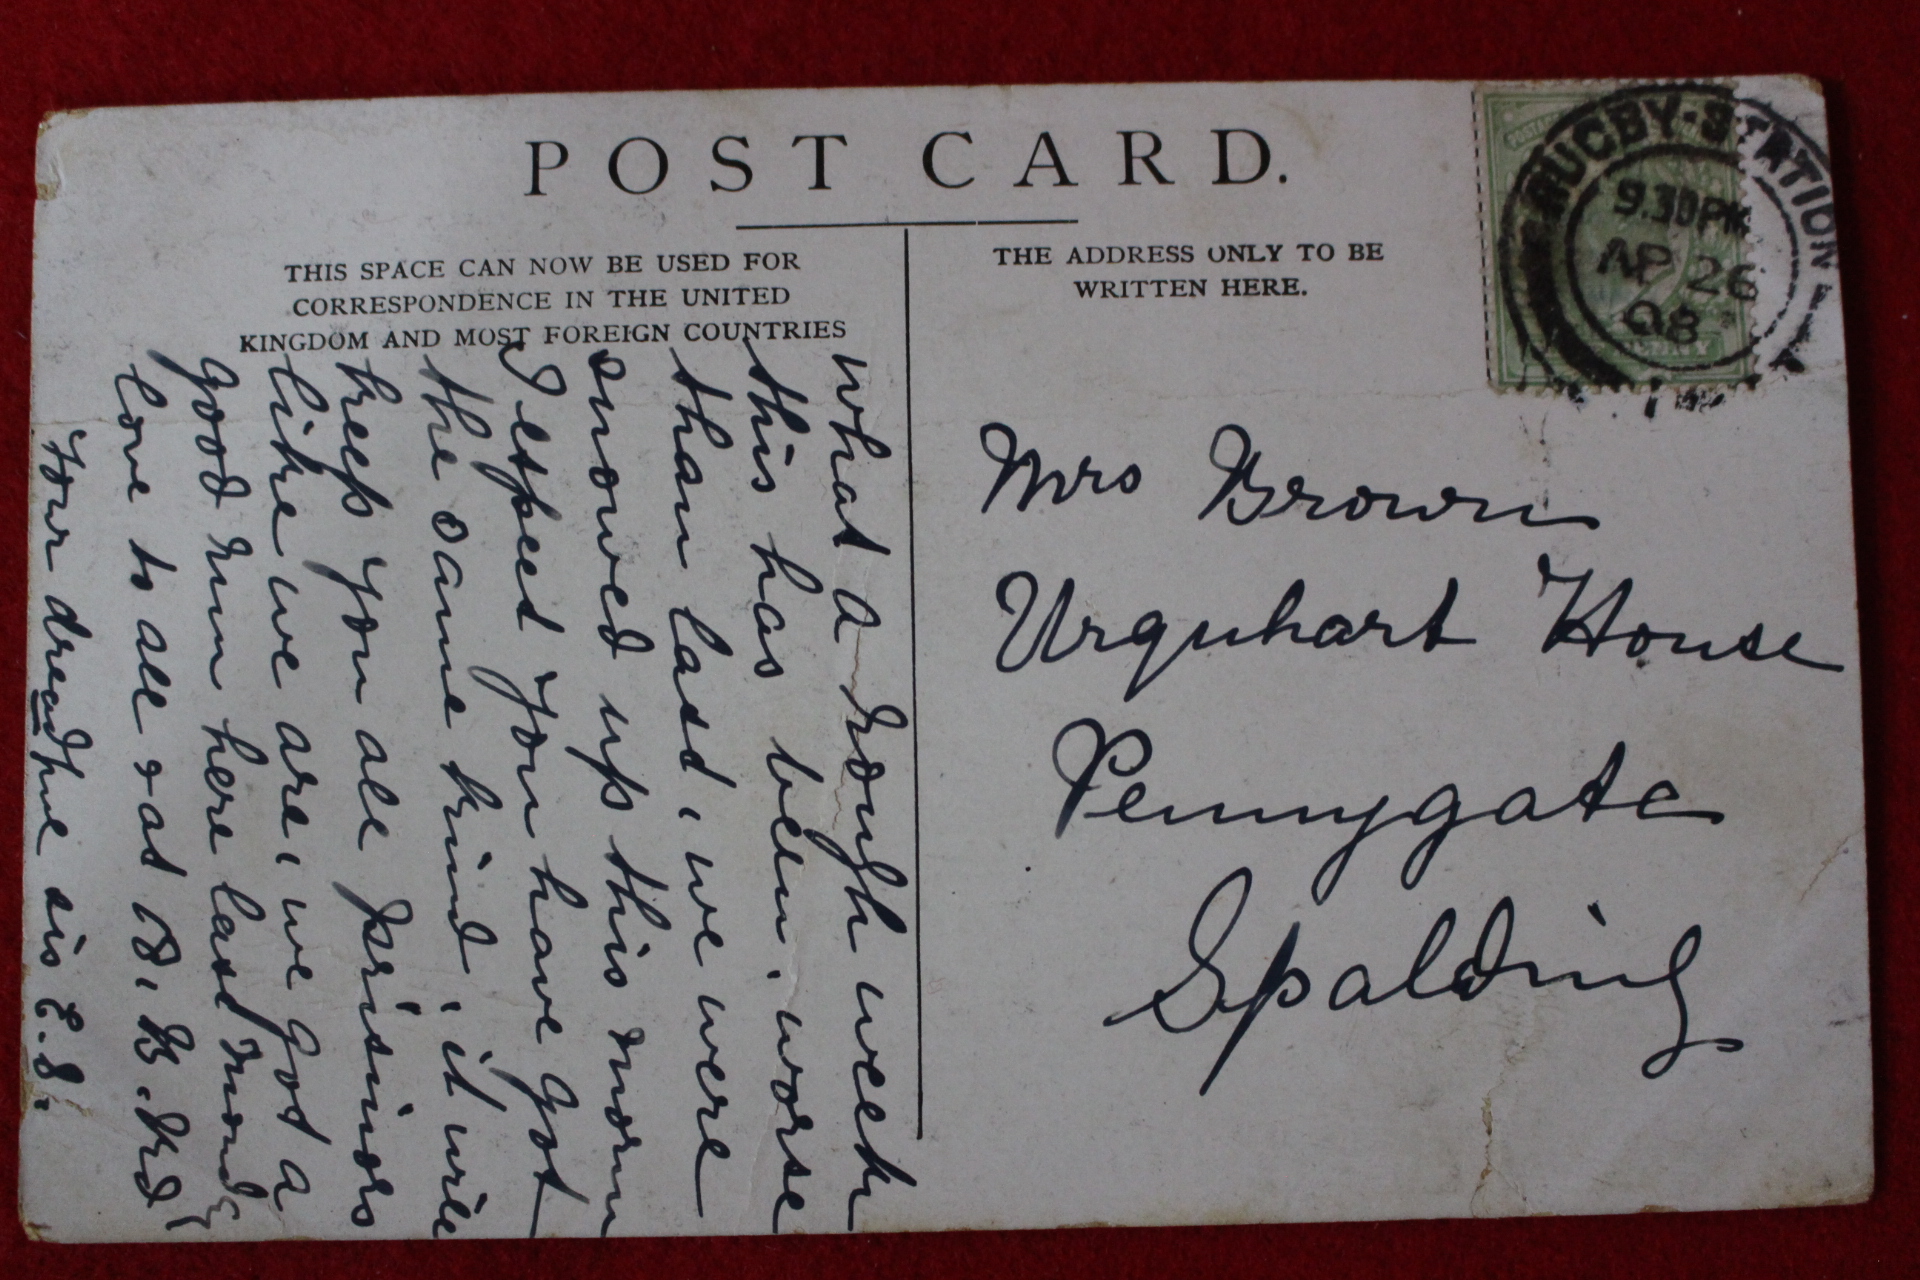 POST CARD.
THIS SPACE CAN NOW BE USED FOR
CORRESPONDENCE IN THE UNITED
KINGDOM AND MOST FOREIGN COUNTRIES
THE ADDRESS ONLY TO BE
WRITTEN HERE.
RUGBY·STATION
9.30PM
AP 26
08
Mrs Brown
Urquhart House
Pennygate
Spalding
What a rough week
this has been, worse
than last, we were
snowed up this morn
I expect you have got
the same kind, it will
keep you all prisinors
like we are, we got a
good run here last mond
love to all & at 18, B. Rd
Your dread
sis E.S.